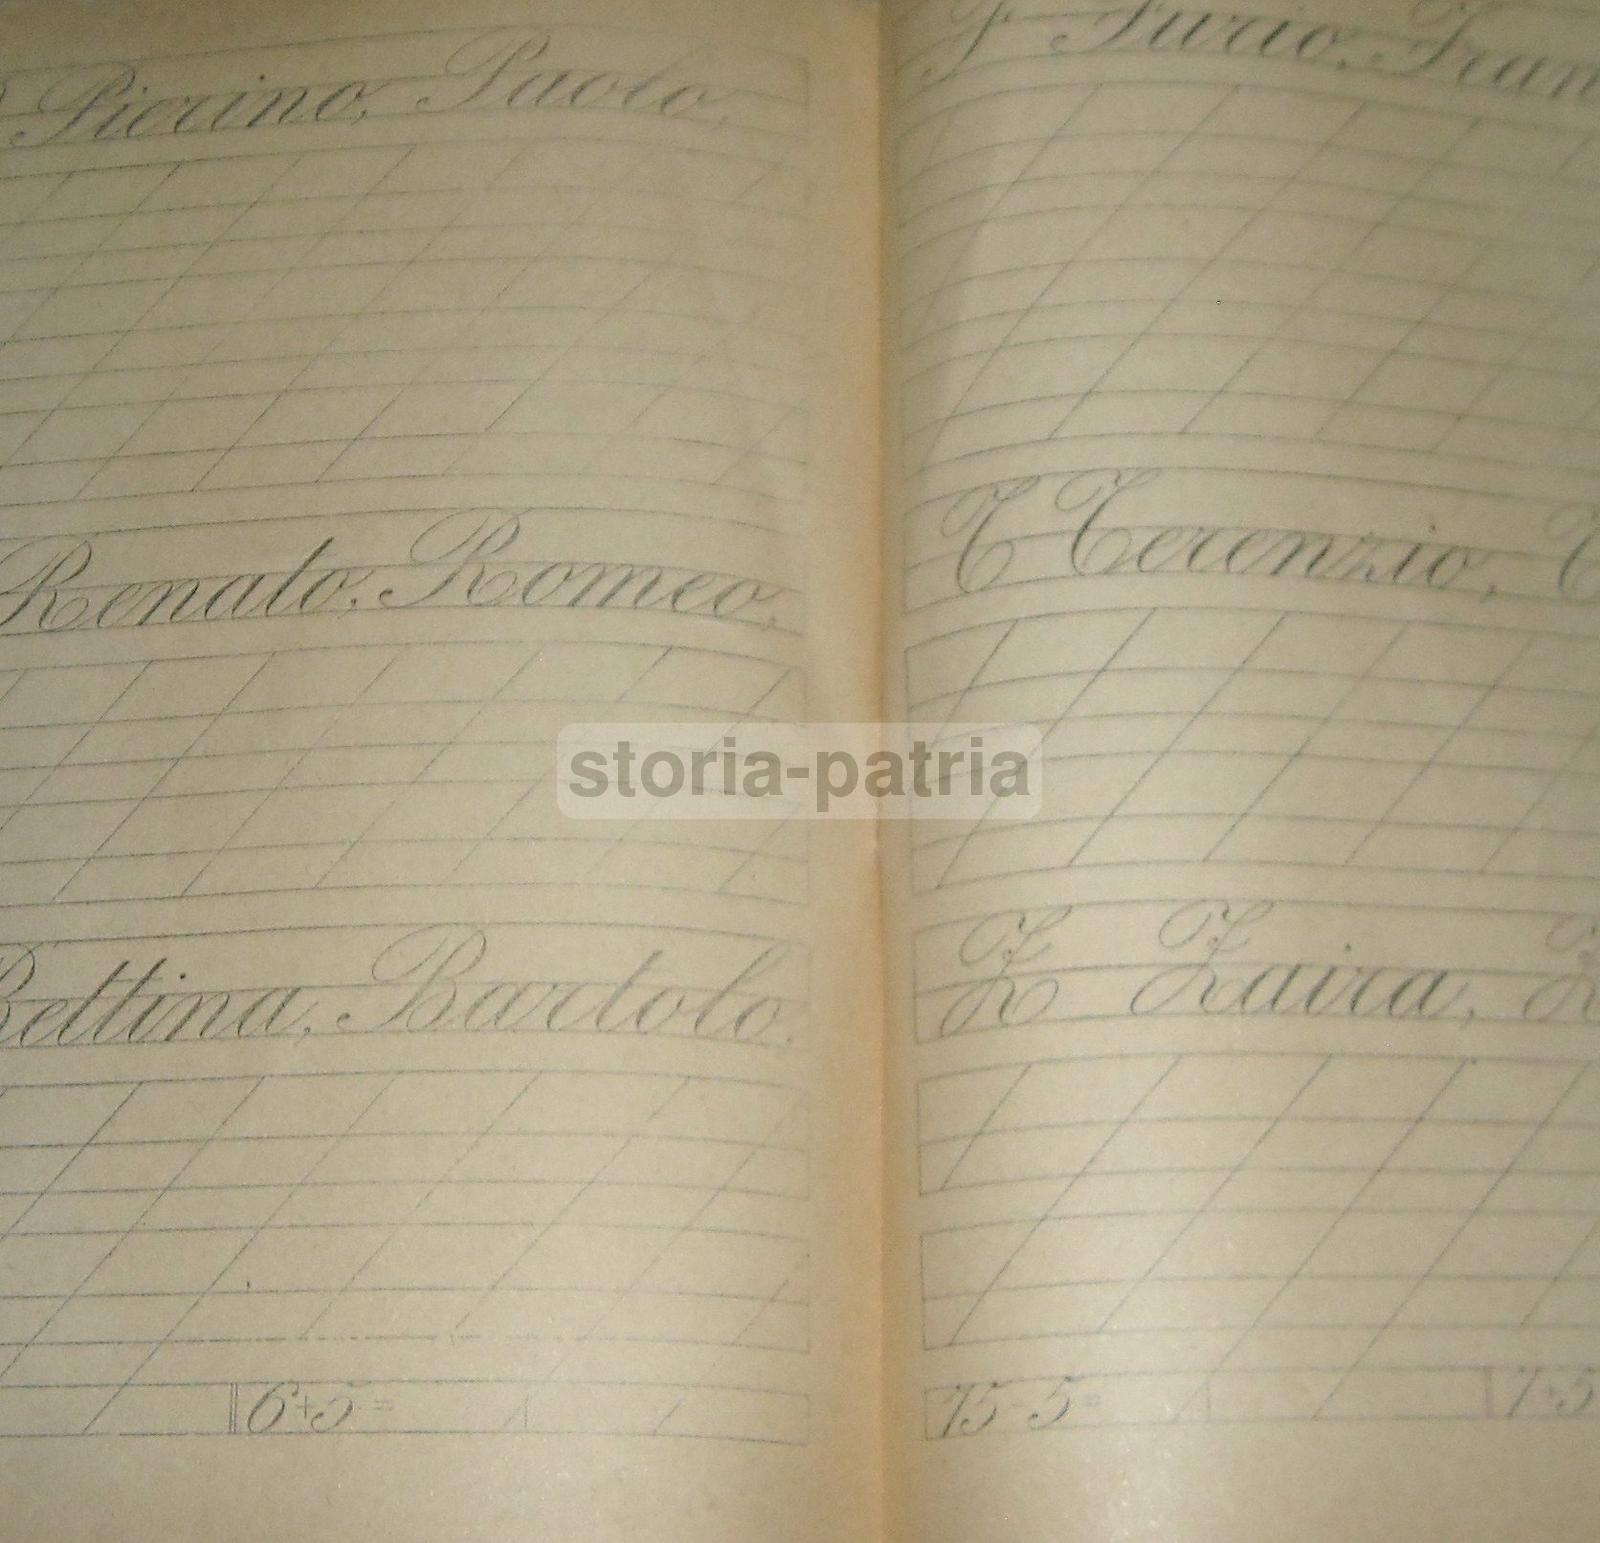 Pierino, Paolo,
Renato, Romeo,
Bettina, Bartolo.
6+5=
F Furio, Fran
T Terenzio, T
Z Zaira, Z
15-5=
7+5
storia-patria